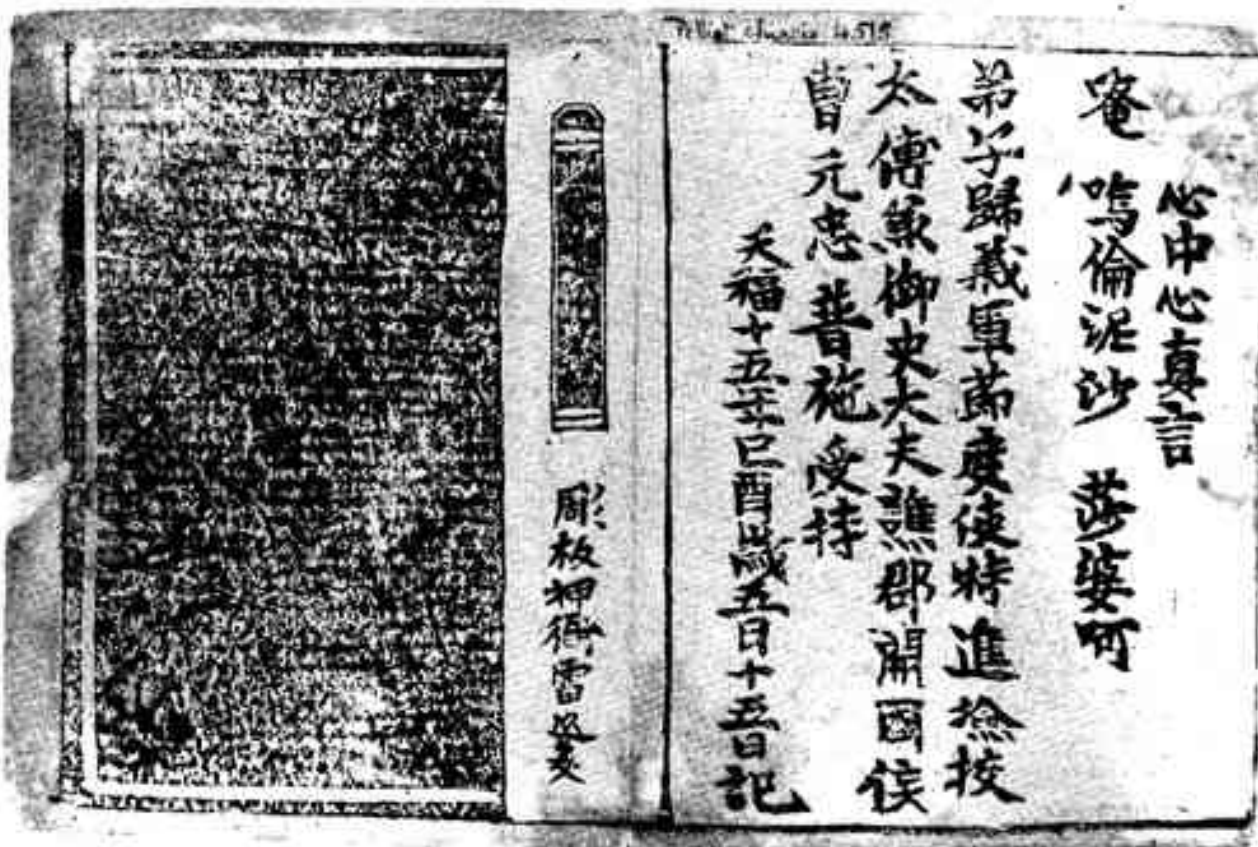 Pelliot chinois 4515
心中心真言
唵 嗚倫泥沙 莎婆呵
弟子歸義軍節度使特進檢校
太傅兼御史大夫譙郡開國侯
曹元忠普施受持
天福十五年己酉歲五日十五日記
雕板押衙雷延美